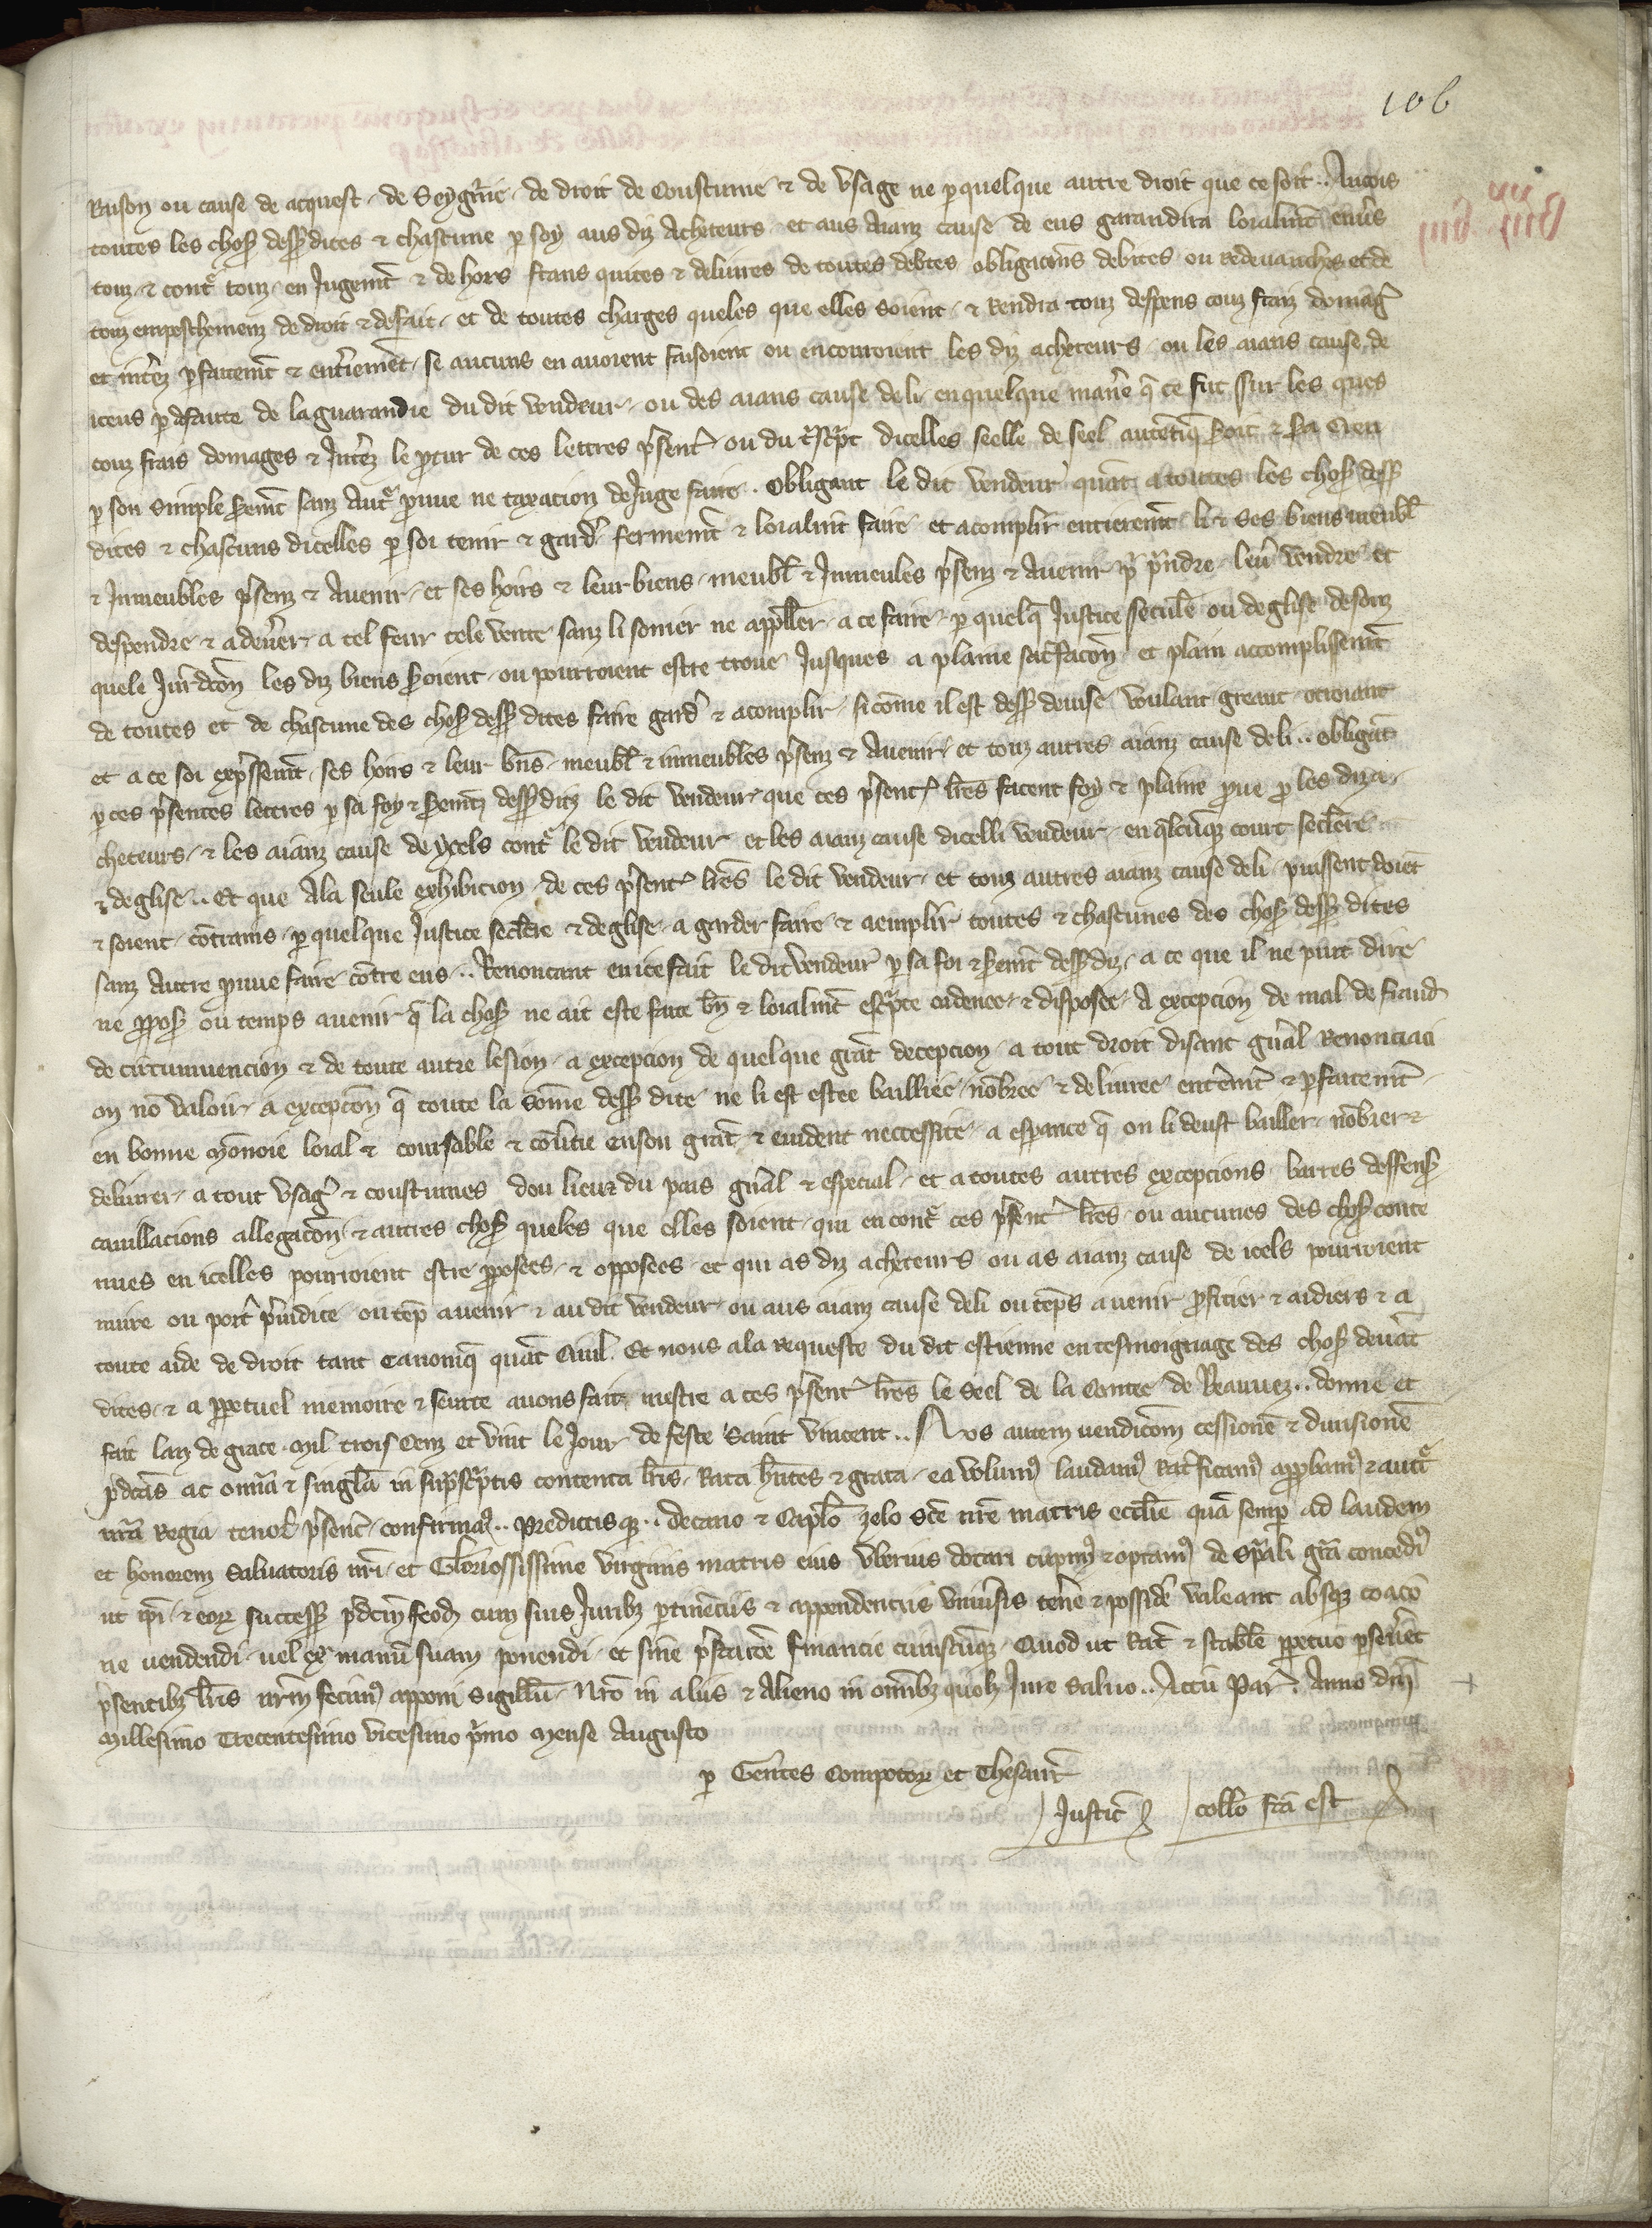 106
Raison ou cause de acquest de Seygnrie de droit de Coustume & de usage ne p quelque autre droit que ce soit .. Ancois
toutes les choses dess dites & chascune p soy aus diz Acheteurs et aus Aianz cause de eus garandira loialmt envers
touz & contre touz en Jugemt & de hors frans quites & delivres de toutes debtes obligacions debites ou Redevanches et de
touz empeschemenz de droit & de fait et de toutes charges queles que elles soient & Rendra touz despens couz fraiz domag
et interez pfaitemt & entieremet se aucuns en avoient faisoient ou encouroient les diz acheteurs ou les aians cause de
iceus p defaute de la guarandie du dit vendeur ou des aians cause de li en quelque maniere q ce fut sur les ques
couz frais domages & Interez le porteur de ces lettres present ou du transcript dicelles seelle de seel autetiq soit & sa Creu
p son simple seremt sanz Autre prueve ne taxacion de Juge faire . Obligant le dit vendeur quat a toutes les choses dess
dites & chascuns dicelles p soi tenir & garder fermemt & loialmt faire et acomplir entieremt li & ses biens meubl
& Inmeubles presenz & Avenir et ses hoirs & leur biens meubl & Inmeules presenz & Avenir pr prendre lever vendre et
despendre & adenerer a tel feur tele vente sanz li somer ne appeller a ce faire p quelq Justice seculere ou deglise desouz
quele Juridicon les diz biens seroient ou pourroient estre trove Jusques a plaine satisfacon et plain accomplissemt
de toutes et de chascune des choses dess dites faire garder & acomplir si come il est dess devise voulant greant otroiant
et a ce soi expressemt ses hoirs & leur bns meubl & inmeubles presenz & Avenir et touz autres aianz cause de li .. obligat
p ces presentes lettres p sa foy & seremt dess diz le dit vendeur que ces present lres facent foy & plaine prueve por les diz a
cheteurs & les aianz cause de ycels contre le dit vendeur et les aianz cause dicelli vendeur en qlcuque court seclere
& deglise .. Et que Ala seule exhibicion de ces present lres le dit vendeur et touz autres aianz cause de li puissent doiet
& soient cotrains p quelque Justice seclere & deglise a garder faire & aemplir toutes & chascunes des choses dess dites
sanz Autre prueve faire cotre eus .. Renoncant en ice fait le dit vendeur p sa foi & seremt dess diz a ce que il ne puit dire
ne propos ou temps avenir q la chose ne ait este faite bn & loialmt escripte ordenee & disposee A excepcion de mal de fraud
de circumvencion & de toute autre lesion a excepcion de quelque grat decepcion a tout droit disant gnral Renonciaci
on no valoir a excepcon q toute la some dess dite ne li est estee bailliee nobree & delivree enteremt & pfaitemt
en bonne monoie loial & coursable & covertie en son grat & evident neccessite a esperance q on li deust bailler nobrer &
delivrer a tout usage & coustumes dou lieu & du pais gnral & especial et a toutes autres excepcions barres deffens
cavillacions allegacon & autres choses queles que elles soient qui encontre ces present lres ou aucunes des choses conte
nues en icelles pourroient estre proposees & opposees et qui as diz acheteurs ou as aianz cause de icels pourroient
nuire ou porter prejudice ou teps avenir & au dit vendeur ou aus aianz cause de li ou teps avenir profitier & aidiers & a
toute aide de droit tant Canoniq quat Civil . Et nous a la requeste du dit estienne en tesmoignage des choses devat
dites & a perpetuel memoire & seurte avons fait mestre a ces present lres le Seel de la Contee de Beauvez .. donne et
fait lan de grace Mil trois Cenz et vint le Jour de feste Saint Vincent .. Nos autem vendicom cessione & divisione
pdcas ac omia & singla in suprascriptis contenta lris Rata hntes & grata ea volum laudam Ratificam approbam & auct
nra Regia tenor presenc confirmam .. Predictisq .. decano & Caplo zelo sce nre matris ecclie qua semp ad laudem
et honorem Salvatoris nri et Gloriossissime virginis matris eius uberius dotari cupim & optam de spali gra concedim
ut ipi & eor success pdcm feod cum suis Juribz ptinenciis & appendenciis universis tenere & possidere valeant absq coaco
ne vendendi vel ex manu suam ponendi et sine prestacoe financie cuiuscuq . Quod ut Rat & stabile perpetuo pseveret
presentibz lris nrm fecim apponi sigillu . Nro in aliis & Alieno in omibz quolz Jure Salvo .. Actu Par . Anno dni
Millesimo Trecentesimo vicesimo primo Mense Augusto
p Gentes Compotor et Thesaur
Justic collo fca est